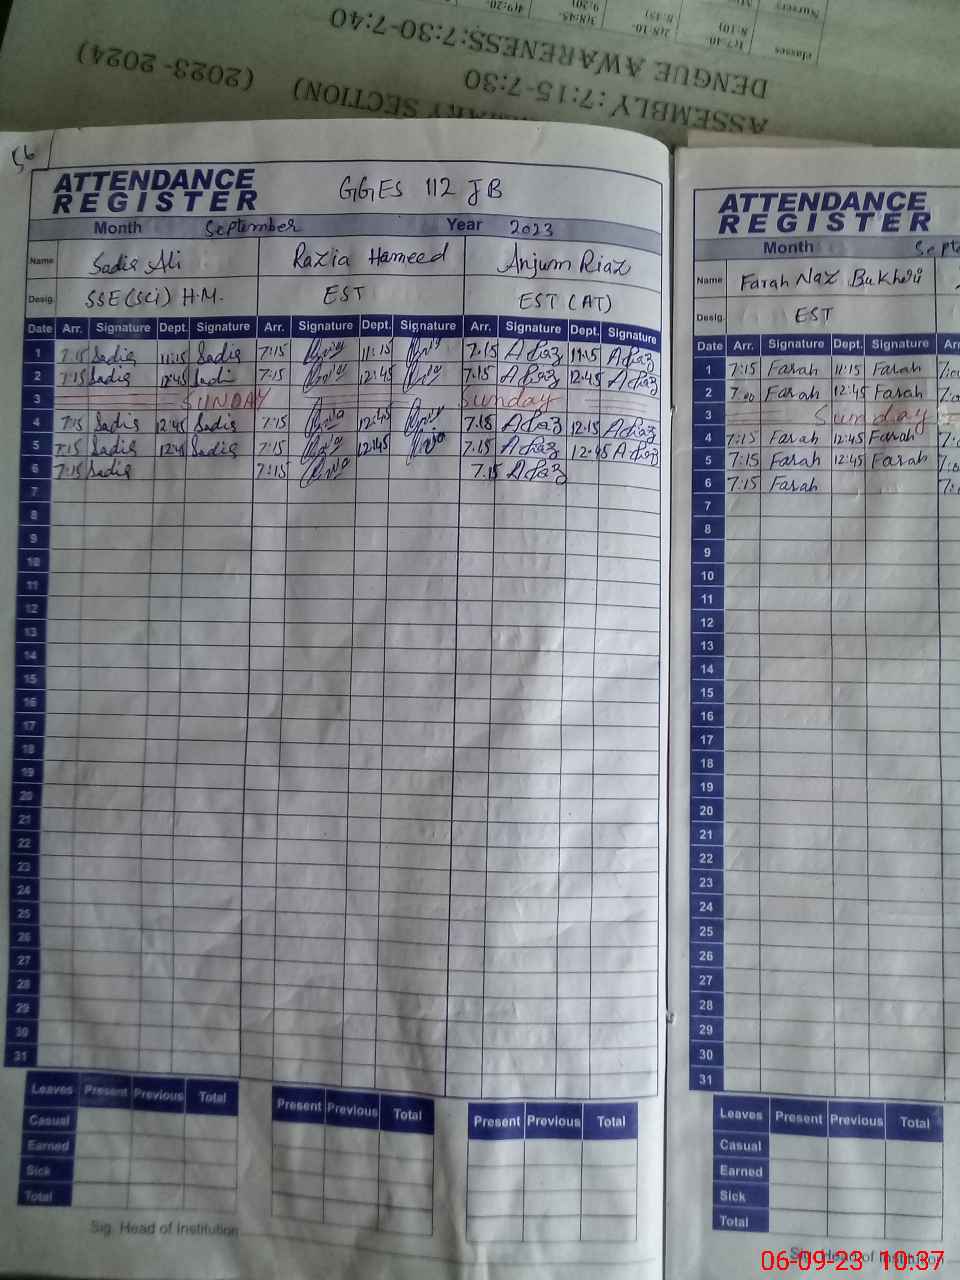 classes
Nursery
1(7:40-
8:10)
2(8:10-
8:45)
3(8:45-
9:20)
4(9:20-
DENGUE AWARENESS:7:30-7:40
ASSEMBLY :7:15-7:30
SECTION) (2023-2024)
56
ATTENDANCE
REGISTER
GGES 112 JB
Month September Year 2023
Name Sadia Ali Razia Hameed Anjum Riaz
Desig. SSE(Sci) H.M. EST EST (AT)
Date Arr. Signature Dept. Signature Arr. Signature Dept. Signature Arr. Signature Dept. Signature
1 7:15 Sadia 11:15 Sadia 7:15 11:15 7.15 11:15
2 7:15 Sadia 12:45 Sadia 7:15 12:45 7.15 12:45
3 SUNDAY Sunday
4 7:15 Sadia 12:45 Sadia 7:15 12:45 7.15 12:15
5 7:15 Sadia 12:45 Sadia 7:15 12:45 7.15 12:45
6 7:15 Sadia 7:15 7.15
7
8
9
10
11
12
13
14
15
16
17
18
19
20
21
22
23
24
25
26
27
28
29
30
31
Leaves Present Previous Total Present Previous Total Present Previous Total
Casual
Earned
Sick
Total
Sig. Head of Institution
ATTENDANCE
REGISTER
Month Septe
Name Farah Naz Bukhari
Desig. EST
Date Arr. Signature Dept. Signature Arr
1 7:15 Farah 11:15 Farah
2 7:00 Farah 12:45 Farah
3 Sunday
4 7:15 Farah 12:45 Farah
5 7:15 Farah 12:45 Farah
6 7:15 Farah
7
8
9
10
11
12
13
14
15
16
17
18
19
20
21
22
23
24
25
26
27
28
29
30
31
Leaves Present Previous Total
Casual
Earned
Sick
Total
Sig. Head of Institution
06-09-23 10:37